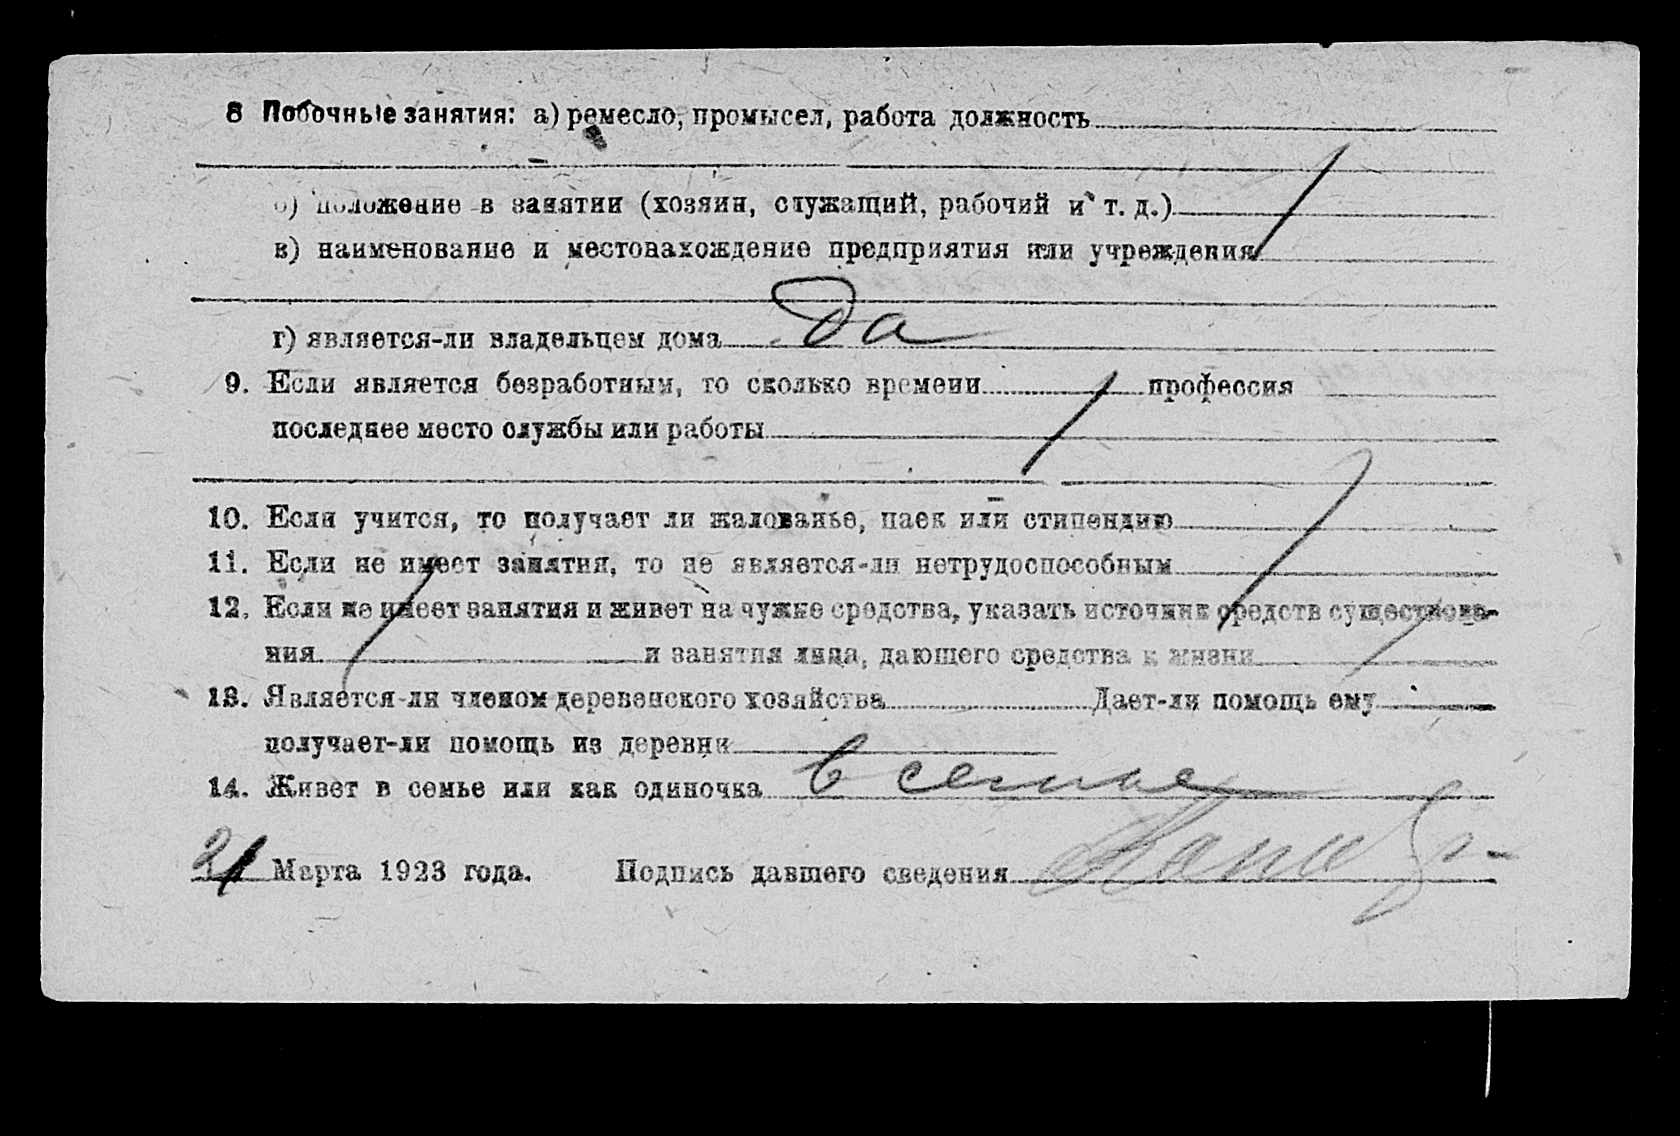 8 Побочные занятия: а) ремесло, промысел, работа должность
б) положение в занятии (хозяин, служащий, рабочий и т. д.)
в) наименование и местонахождение предприятия или учреждения
г) является-ли владельцем дома Да
9. Если является безработным, то сколько времени профессия
последнее место службы или работы
10. Если учится, то получает ли жалованье, паек или стипендию
11. Если не имеет занятия, то не является-ли нетрудоспособным
12. Если не имеет занятия и живет на чужие средства, указать источник средств существова-
ния и занятия лица, дающего средства к жизни
13. Является-ли членом деревенского хозяйства Дает-ли помощь ему
получает-ли помощь из деревни
14. Живет в семье или как одиночка в семье
21 Марта 1923 года. Подпись давшего сведения